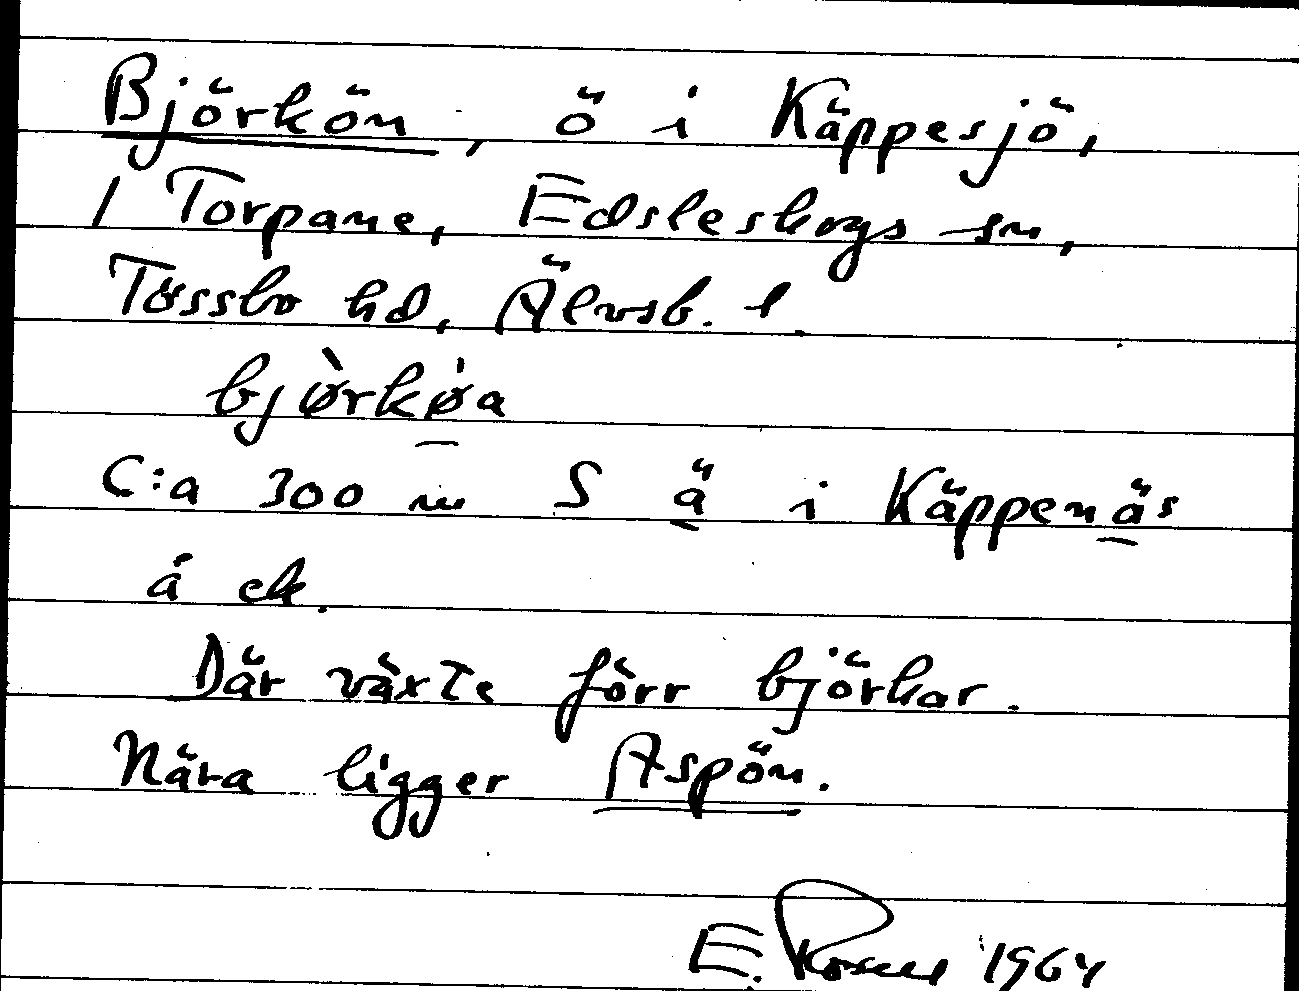 Björkön, ö i Käppesjö,
1 Torpane, Edsleskogs sn,
Tössbo hd, Älvsb. l.
bjø̀rkø̍a
C:a 300 m S ä i Käppenäs
å ek.
Där växte förr björkar.
Nära ligger Aspön.
E. 1964